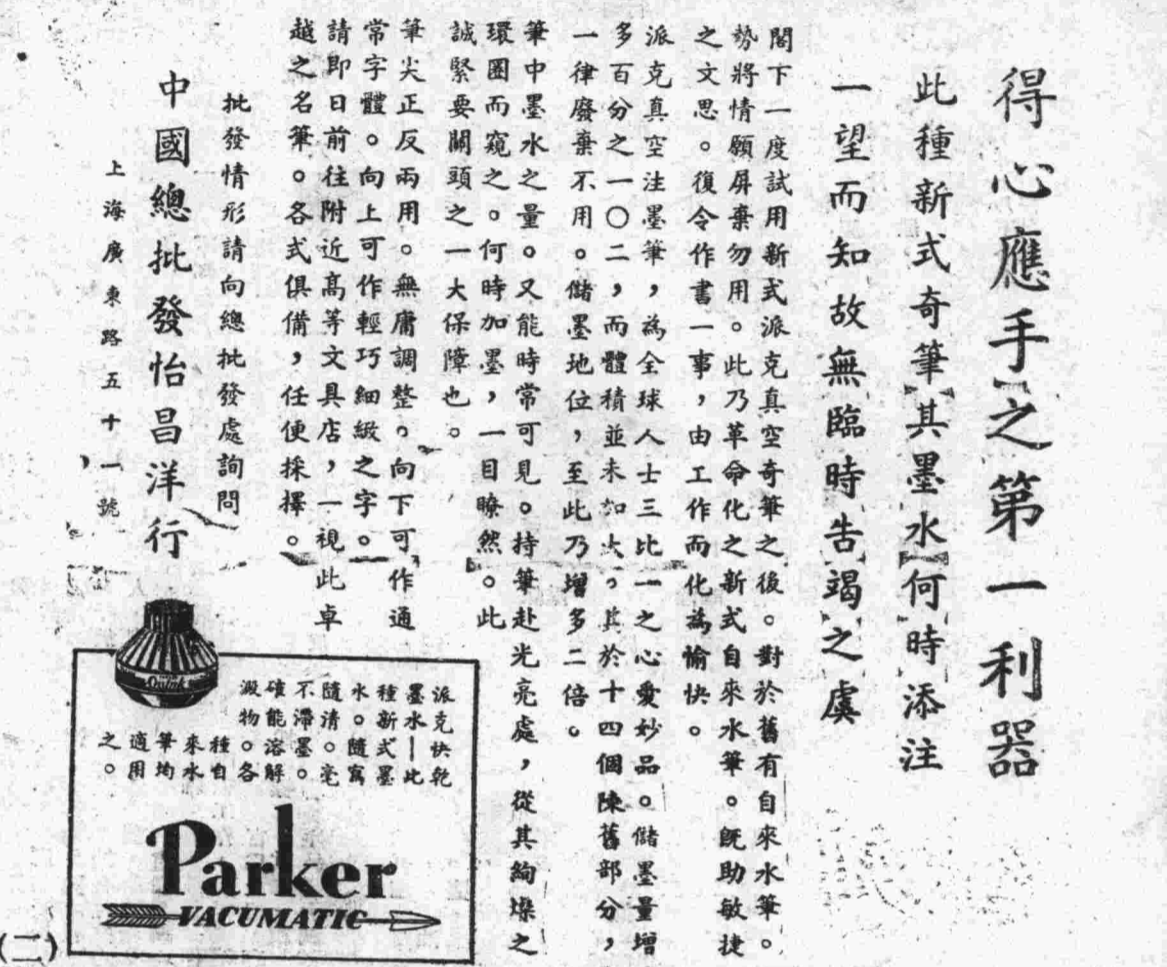 得心應手之第一利器
此種新式奇筆其墨水何時添注
一望而知故無臨時告竭之虞
閣下一度試用新式派克真空奇筆之後。對於舊有自來水筆。
勢將情願屏棄勿用。此乃革命化之新式自來水筆。既助敏捷
之文思。復令作書一事,由工作而化為愉快。
派克真空注墨筆,為全球人士三比一之心愛妙品。儲墨量增
多百分之一〇二,而體積並未加大。其於十四個陳舊部分,
一律廢棄不用。儲墨地位,至此乃增多二倍。
筆中墨水之量。又能時常可見。持筆赴光亮處,從其絢爍之
環圈而窺之。何時加墨,一目瞭然。此
誠緊要關頭之一大保障也。
筆尖正反兩用。無庸調整。向下可作通
常字體。向上可作輕巧細緻之字。
請即日前往附近高等文具店,一視此卓
越之名筆。各式俱備,任便採擇。
批發情形請向總批發處詢問
中國總批發怡昌洋行
上海廣東路五十一號
派克快乾
墨水—此
種新式墨
水。隨寫
隨清。毫
不滯墨。
確能溶解
澱物。各
種自
來水
筆均
適用
之。
Quink
Parker
VACUMATIC
(二)